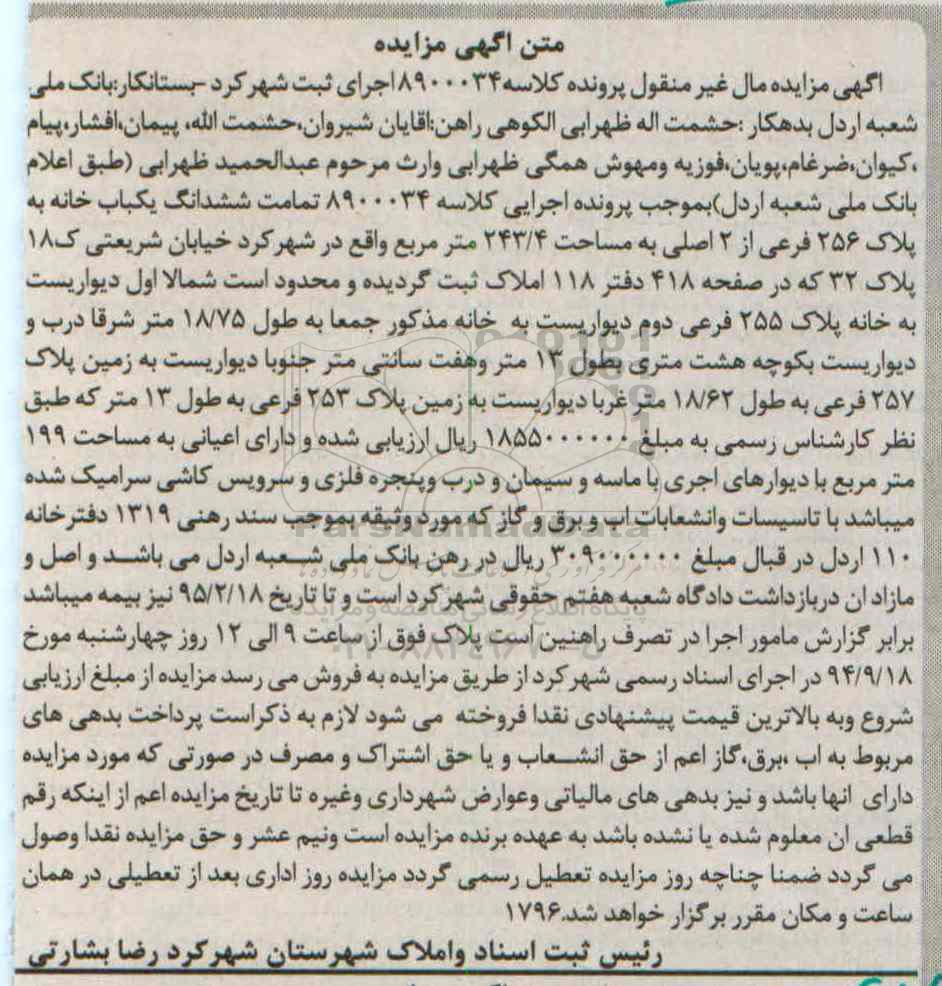 متن اگهی مزایده
اگهی مزایده مال غیر منقول پرونده کلاسه۸۹۰۰۰۳۴اجرای ثبت شهرکرد -بستانکار:بانک ملی
شعبه اردل بدهکار :حشمت اله ظهرابی الکوهی راهن:اقایان شیروان،حشمت الله، پیمان،افشار،پیام
،کیوان،ضرغام،پویان،فوزیه ومهوش همگی ظهرابی وارث مرحوم عبدالحمید ظهرابی (طبق اعلام
بانک ملی شعبه اردل)بموجب پرونده اجرایی کلاسه ۸۹۰۰۰۳۴ تمامت ششدانگ یکباب خانه به
پلاک ۲۵۶ فرعی از ۲ اصلی به مساحت ۲۴۳/۴ متر مربع واقع در شهرکرد خیابان شریعتی ک۱۸
پلاک ۳۲ که در صفحه ۴۱۸ دفتر ۱۱۸ املاک ثبت گردیده و محدود است شمالا اول دیواریست
به خانه پلاک ۲۵۵ فرعی دوم دیواریست به خانه مذکور جمعا به طول ۱۸/۷۵ متر شرقا درب و
دیواریست بکوچه هشت متری بطول ۱۳ متر وهفت سانتی متر جنوبا دیواریست به زمین پلاک
۲۵۷ فرعی به طول ۱۸/۶۲ متر غربا دیواریست به زمین پلاک ۲۵۳ فرعی به طول ۱۳ متر که طبق
نظر کارشناس رسمی به مبلغ ۱۸۵۵۰۰۰۰۰۰ ریال ارزیابی شده و دارای اعیانی به مساحت ۱۹۹
متر مربع با دیوارهای اجری با ماسه و سیمان و درب وپنجره فلزی و سرویس کاشی سرامیک شده
میباشد با تاسیسات وانشعابات اب و برق و گاز که مورد وثیقه بموجب سند رهنی ۱۳۱۹ دفترخانه
۱۱۰ اردل در قبال مبلغ ۳۰۹۰۰۰۰۰۰ ریال در رهن بانک ملی شعبه اردل می باشد و اصل و
مازاد ان دربازداشت دادگاه شعبه هفتم حقوقی شهرکرد است و تا تاریخ ۹۵/۲/۱۸ نیز بیمه میباشد
برابر گزارش مامور اجرا در تصرف راهنین است پلاک فوق از ساعت ۹ الی ۱۲ روز چهارشنبه مورخ
۹۴/۹/۱۸ در اجرای اسناد رسمی شهرکرد از طریق مزایده به فروش می رسد مزایده از مبلغ ارزیابی
شروع وبه بالاترین قیمت پیشنهادی نقدا فروخته می شود لازم به ذکراست پرداخت بدهی های
مربوط به اب ،برق،گاز اعم از حق انشعاب و یا حق اشتراک و مصرف در صورتی که مورد مزایده
دارای انها باشد و نیز بدهی های مالیاتی وعوارض شهرداری وغیره تا تاریخ مزایده اعم از اینکه رقم
قطعی ان معلوم شده یا نشده باشد به عهده برنده مزایده است ونیم عشر و حق مزایده نقدا وصول
می گردد ضمنا چناچه روز مزایده تعطیل رسمی گردد مزایده روز اداری بعد از تعطیلی در همان
ساعت و مکان مقرر برگزار خواهد شد.۱۷۹۶
رئیس ثبت اسناد واملاک شهرستان شهرکرد رضا بشارتی
ParsNamadData